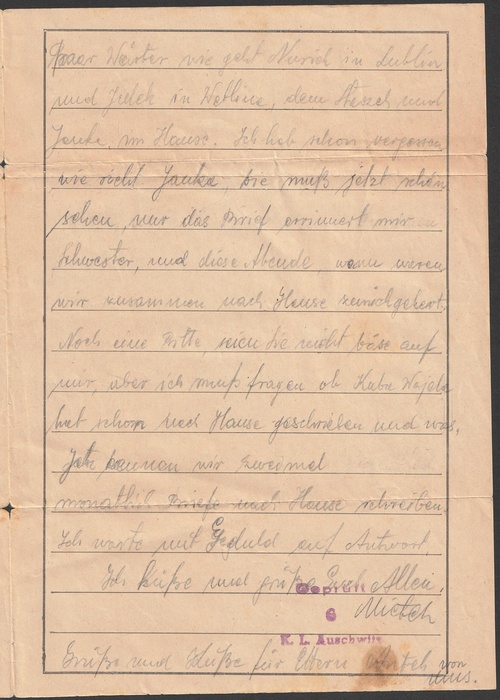 paar Wörter wie geht Nurich in Lublin
und Jurek in Weblin, dem Stesch und
Janke, im Hause. Ich hab schon vergessen
wie sieht Janka, sie muß jetzt schön
sehen, nur das Brief erinnert mir
Schwester, und diese Abende, wann waren
wir zusammen nach Hause zurückgekert.
Noch eine Bitte, seien Sie nicht böse auf
mir, aber ich muß fragen ob Kuba
hat schon nach Hause geschrieben und was.
Jetz kennen wir zweimal
monatlich Briefe nach Hause schreiben.
Ich warte mit Geduld auf Antwort.
Ich küße und grüße Euch Allen.
Mietek
Geprüft
6
K. L. Auschwitz
Grüße und Küße für Eltern von
uns.